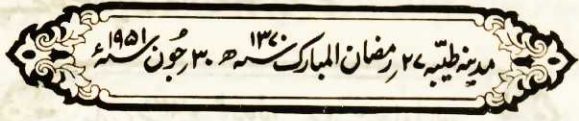 مدینہ طیبّہ ۲۷ رمضان المبارک ۱۳۷۰ سنہ ھ ۳۰ جُون ۱۹۵۱ سنہ ء